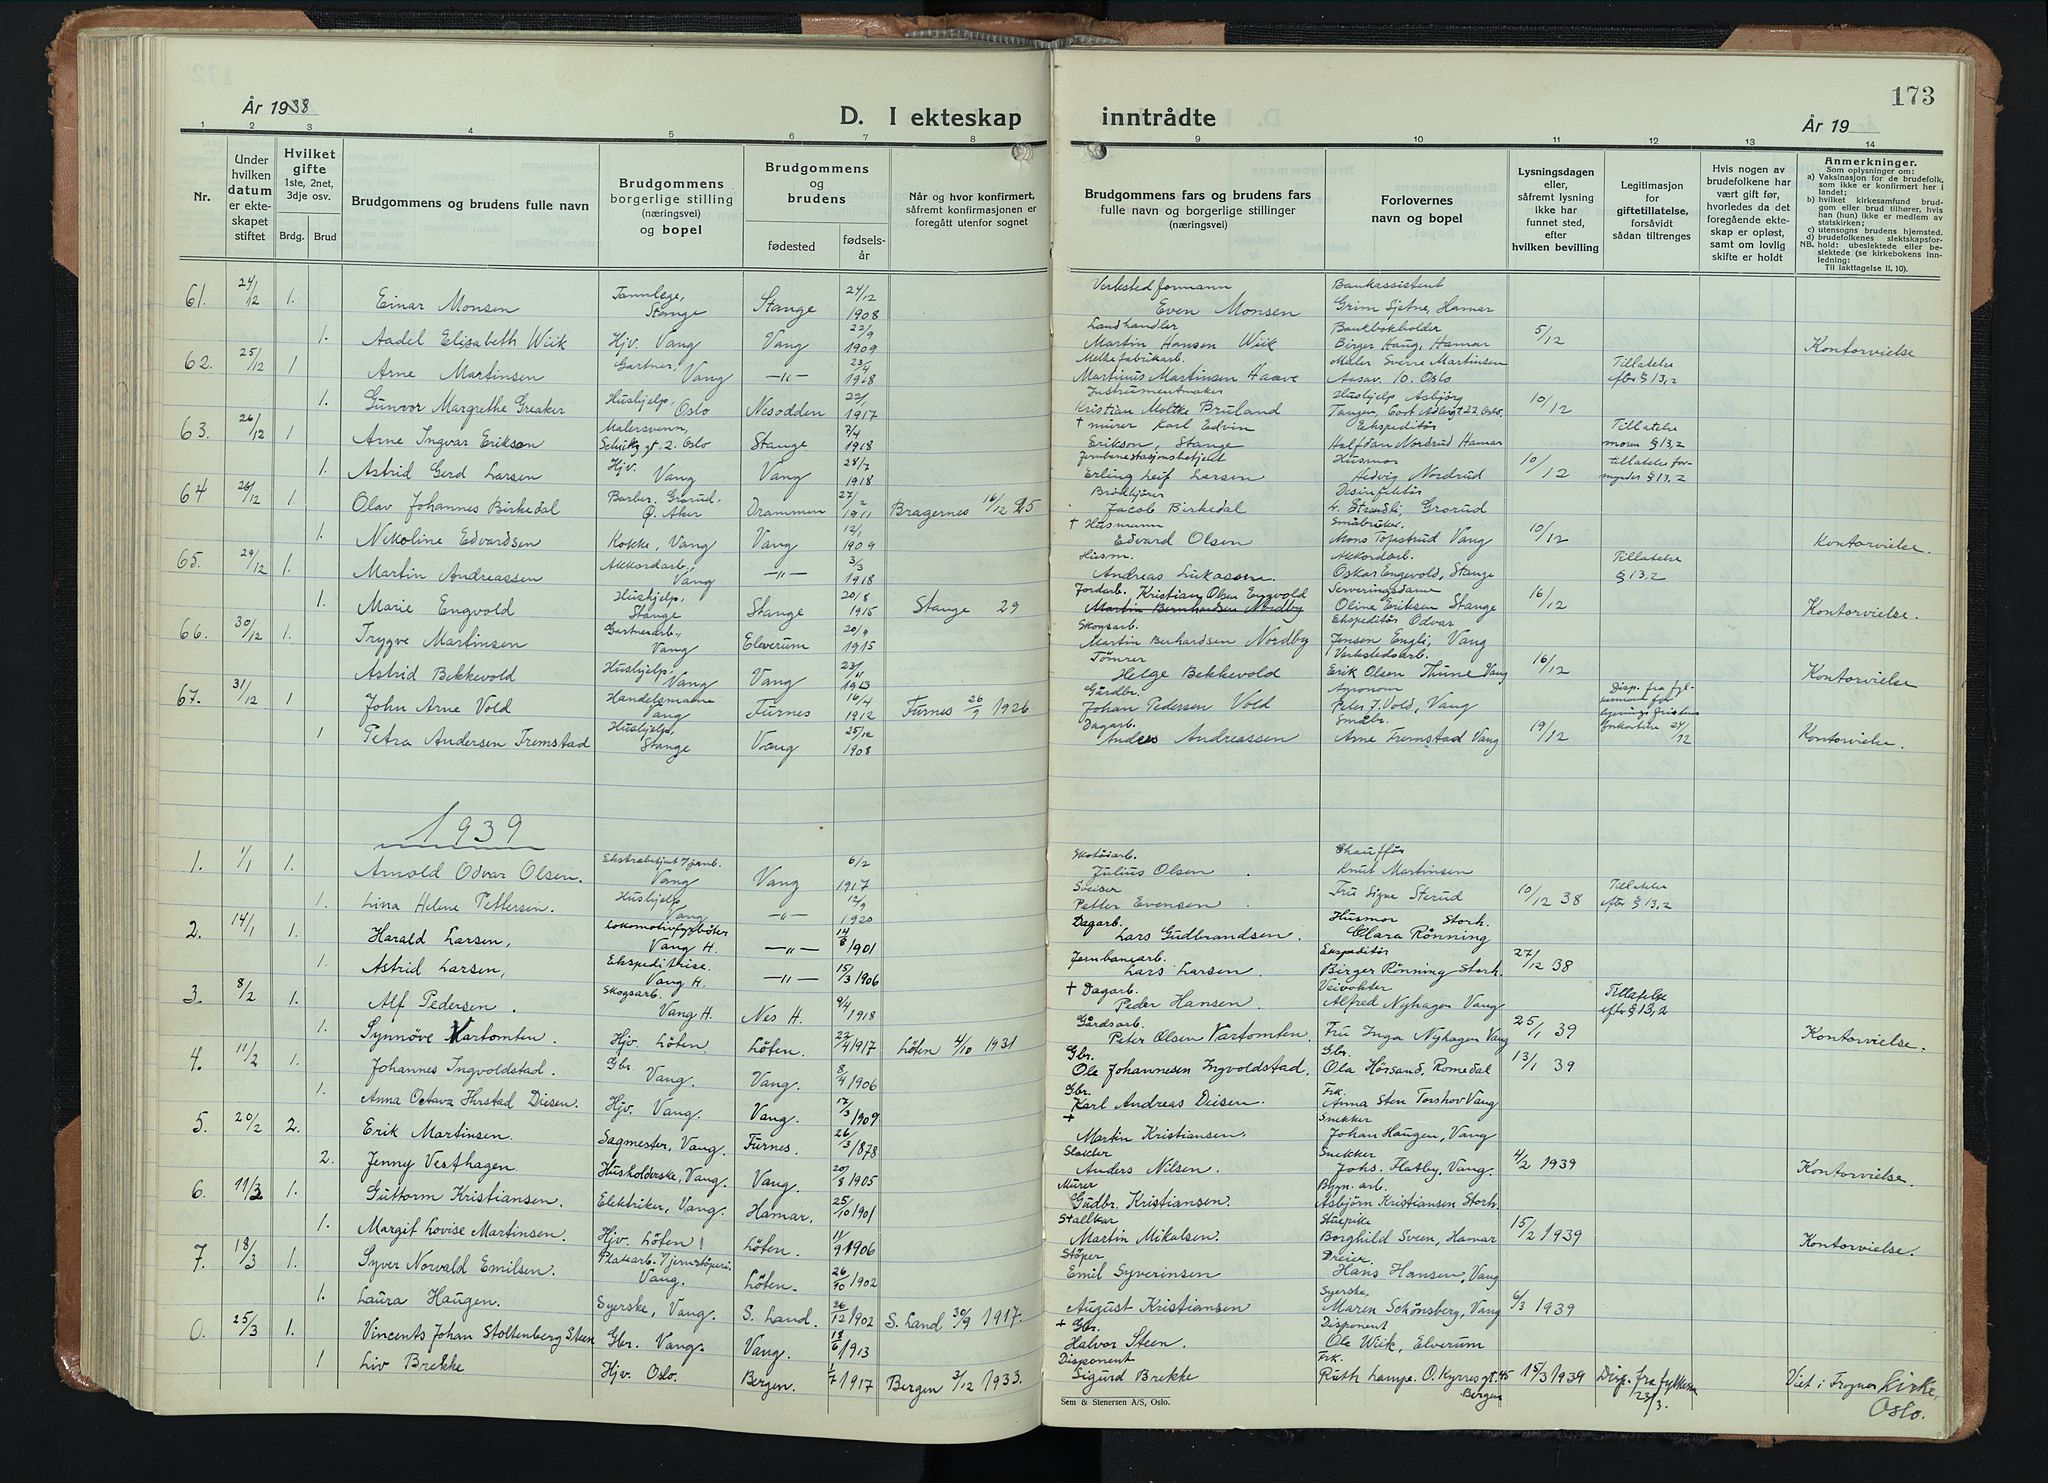 173
År 1938
D. I ekteskap inntrådte
År 19
1 2 3 4 5 6 7 8 9 10 11 12 13 14
Nr.
Under hvilken datum er ekteskapet stiftet
Hvilket gifte 1ste, 2net, 3dje osv.
Brdg. Brud
Brudgommens og brudens fulle navn
Brudgommens borgerlige stilling (næringsvei) og bopel
Brudgommens og brudens
fødested
fødselsår
Når og hvor konfirmert, såfremt konfirmasjonen er foregått utenfor sognet
Brudgommens fars og brudens fars fulle navn og borgerlige stillinger (næringsvei)
Forlovernes navn og bopel
Lysningsdagen eller, såfremt lysning ikke har funnet sted, efter hvilken bevilling
Legitimasjon for giftetillatelse, forsåvidt sådan tiltrenges
Hvis nogen av brudefolkene har vært gift før, hvorledes da det foregående ekteskap er opløst, samt om lovlig skifte er holdt
Anmerkninger.
Som oplysninger om:
a) Vaksinasjon for de brudefolk, som ikke er konfirmert her i landet;
b) hvilket kirkesamfund brudgom eller brud tilhører, hvis han (hun) ikke er medlem av statskirken;
c) utensogns brudens hjemsted.
d) brudefolkenes slektskapsforhold: ubeslektede eller beslektede (se kirkebokens innledning:
NB.
Til iakttagelse II. 10).
61. 24/12 1. Einar Monsen Tannlege, Stange Stange 24/12 1908 Verkstedformann Even Monsen Bankassistent Grim Sjetne, Hamar
1. Aadel Elisabeth Wiik Hjv. Vang Vang 22/9 1909 Landhandler Martin Hansen Wiik Bankbokholder Birger Haug, Hamar 5/12 Kontorvielse
62. 25/12 1 Arne Martinsen Gartner, Vang —"— 23/4 1918 Melkefabrikarb. Martinus Martinsen Haave Maler Sverre Martinsen Aasav. 10. Oslo Tillatelse efter § 13,2
1. Gunvor Margrethe Greaker Hushjelp, Oslo Nesodden 22/1 1917 Instrumentmaker Kristian Moltke Bruland Hushjelp Asbjörg Tangen, 22 Oslo. 10/12
63. 26/12 1 Arne Ingvar Erikson Malersvenn, 2. Oslo Stange 7/4 1918 + murer Karl Edvin Erikson, Stange Ekspeditör Halfdan Nordrud Hamar Tillatelse moren § 13,2
1. Astrid Gerd Larsen Hjv. Vang Vang 28/7 1918 Jernbanestasjonsbetjent Erling Leif Larsen Husmor Hedvig Nordrud 10/12 tillatelse formynder § 13,2
64 26/12 1. Olav Johannes Birkedal Barber, Grorud, Ö. Aker Drammen 27/2 1911 Bragernes 16/12 25 Jacob Birkedal Desinfektör Grorud
1. Nikoline Edvardsen Kokke, Vang Vang 12/1 1909 + Husmann Edvard Olsen Småbruker. Mons Topstrud Vang 10/12 Kontorvielse.
65. 29/12 1. Martin Andreassen Akkordarb. Vang —"— 3/3 1918 Husm. Andreas Lukassen. Akkordarb. Oskar Engevold, Stange Tillatelse § 13,2
1. Marie Engvold Hushjelp, Stange Stange 20/8 1915 Stange 29 Jordarb. Kristian Olsen Engvold Martin Bernhardsen Nordby Serveringsdame Oline Eriksen Stange 16/12 Kontorvielse.
66. 30/12 1. Trygve Martinsen Gartnerarb., Vang Elverum 20/9 1915 Skogsarb. Martin Berhardsen Nordby Ekspeditör Odvar Jensen Engli, Vang
Astrid Bekkevold Hushjelp, Vang Vang 23/11 1913 Tömrer Helge Bekkevold Verkstedsarb. Erik Olsen Thune Vang 16/12 Kontorvielse
67. 31/12 1 John Arne Vold Handelsmann Vang Furnes 16/4 1912 Furnes 26/9 1926 Gårdbr. Johan Pedersen Vold Agronom Peter J. Vold, Vang Disp. fra
1 Petra Andersen Fremstad Hushjelp, Stange Vang 25/12 1908 Dagarb. Andres Andreassen Småbr. Arne Fremstad Vang 19/12 24/12 Kontorvielse.
1939
1. 1/1 1. Arnold Odvar Olsen. Ekstrabetjent v/jernb. Vang Vang 6/2 1917 Skotöiarb. Julius Olsen . Chafför Knut Martinsen
1. Lina Helene Pettersen. Hushjelp Vang —"— 12/9 1920 Sveiser Petter Evensen . Fru Signe Sterud 10/12 38 Tillatelse efter § 13,2
2. 14/1 1. Harald Larsen, Lokomotivfyrböter Vang H. —"— 14/8 1901 Dagarb. Lars Gudbrandsen . Husmor Storh. Clara Rönning
1. Astrid Larsen, Ekspeditrise. Vang H. —"— 15/3 1906 Jernbanearb. Lars Larsen . Ekspeditör Birger Rönning Storh. 27/12 38
3. 8/2 1. Alf Pedersen . Skogsarb. Vang H. Nes H. 9/4 1918 + Dagarb. Peder Hansen . Veivokter Alfred Nyhagen Vang Tillatelse efter § 13,2
1. Synnöve Vartomten . Hjv. Löten. Löten. 22/4 1917 Löten 4/10 1931 Gårdsarb. Peter Olsen Vartomten . Fru Inga Nyhagen Vang 25/1 39 Kontorvielse.
4. 11/2 1. Johannes Ingvoldstad. Gbr. Vang. Vang. 8/4 1906 Gbr. Ole Johannesen Ingvoldstad. Gbr. Ola Hörsand, Romedal 13/1 39
1. Anna Octava Hirstad Diesen. Hjv. Vang. Vang. 17/3 1909 Gbr. Karl Andreas Deisen . Frk. Anna Sten Torshov Vang
5. 20/2 2. Erik Martinsen. Sagmester, Vang. Furnes. 26/3 1878 + Martin Kristiansen. Snekker Johan Haugen, Vang
2. Jenny Vesthagen. Husholderske, Vang. Vang. 20/8 1905 Slakter Anders Nilsen . Snekker Johs. Flatby, Vang. 4/2 1939 Kontorvielse.
6. 11/3 1. Guttorm Kristiansen. Elektriker, Vang. Hamar. 25/10 1901 Murer Gudbr. Kristiansen. Bygn. arb. Asbjörn Kristiansen Storh.
1. Margit Lovise Martinsen. Hjv. Löten! Löten. 11/9 1906 Stallkar Martin Mikalsen. Stuepike Borghild Sveen, Hamar 15/2 1939 Kontorvielse.
7. 18/3 1. Syver Norvald Emilsen. Platearb. v/jernstöperi. Vang. Löten. 26/10 1902 Stöper Emil Syverinsen Dreier. Hans Hansen, Vang
1. Laura Haugen. Syerske, Vang. S. Land. 26/12 1902 S. Land 30/9 1917. August Kristiansen Syerske, Maren Schönsberg, Vang 6/3 1939
0. 25/3 1. Vincents Johan Stoltenberg Steen Gbr. Vang. Vang. 18/6 1913 + Gbr. Halvor Steen . Disponent Ole Wiik, Elverum
1 Liv Brekke Hjv. Oslo. Bergen. 1/7 1917 Bergen 3/12 1933. Disponent Sigurd Brekke Frk. Ruth Lampe. O. Kyrres gt. 45 Bergen 15/3 1939 Disp. fra fylkesm 23/3. Viet i Frogner Kirke, Oslo.
Sem & Stenersen A/S, Oslo.